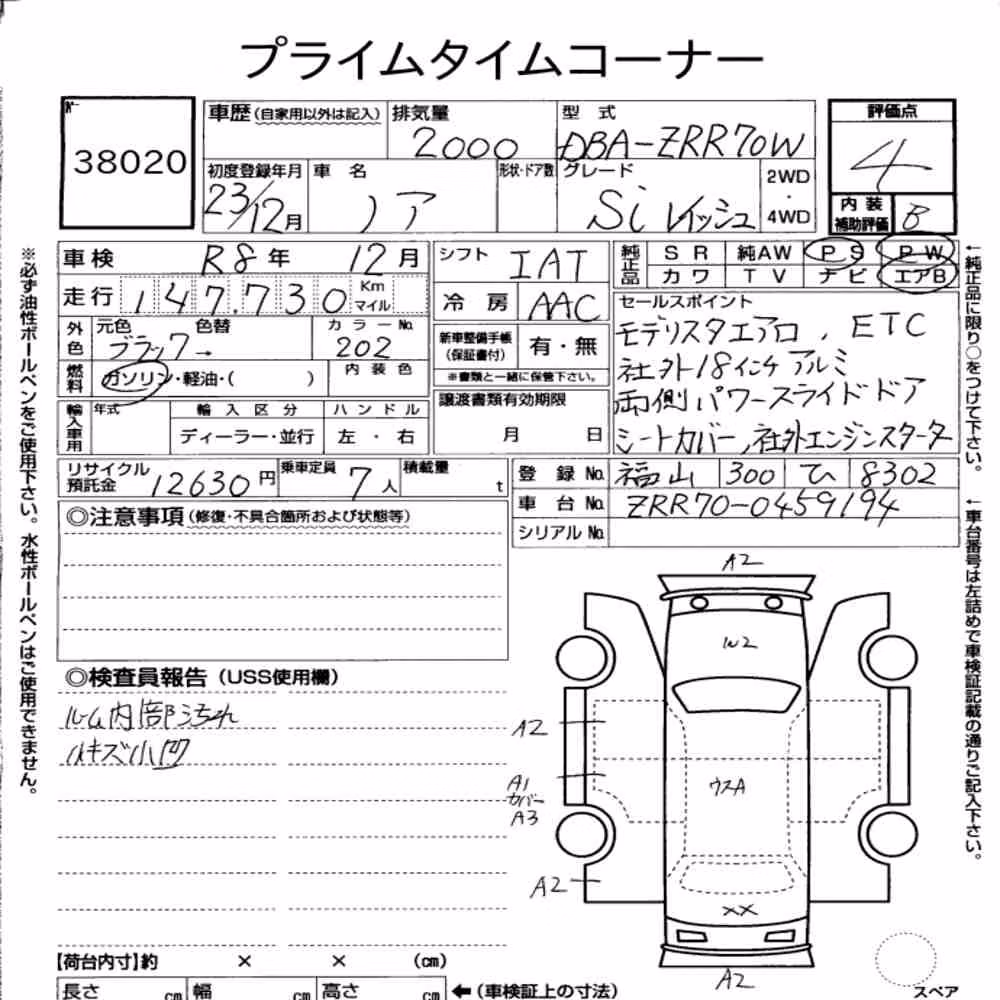 プライムタイムコーナー
№
38020
車歴 (自家用以外は記入)
排気量
2000
型式
DBA-ZRR70W
評価点
4
初度登録年月
23/12月
車名
ノア
形状・ドア数
グレード
Si
2WD
・
4WD
内装
補助評価
B
車検
R8年 12月
シフト
IAT
純正品
SR 純AW PS PW
カワ TV ナビ エアB
走行
147.730
Km
マイル
冷房
AAC
セールスポイント
モデリスタエアロ, ETC
社外18インチアルミ
両側パワースライドドア
シートカバー, 社外エンジンスターター
外色
元色 色替
ブラック→
カラーNo.
202
新車整備手帳
(保証書付)
有・無
※書類と一緒に保管下さい。
燃料
ガソリン・軽油・( )
内装色
譲渡書類有効期限
月 日
輸入車用
年式
輸入区分
ディーラー・並行
ハンドル
左・右
リサイクル
預託金
12630円
乗車定員
7人
積載量
t
登録No.
福山 300 ひ 8302
車台No.
ZRR70-0459194
シリアルNo.
◎注意事項 (修復・不具合箇所および状態等)
◎検査員報告 (USS使用欄)
ルーム内部汚れ
キズ小凹
A2
W2
A2
A1
カバー
A3
ウスA
A2
XX
A2
スペア
【荷台内寸】約 × × (cm)
長さ cm 幅 cm 高さ cm ←(車検証上の寸法)
※必ず油性ボールペンをご使用下さい。水性ボールペンはご使用できません。
←純正品に限り○をつけて下さい。
←車台番号は左詰めで車検証記載の通りご記入下さい。